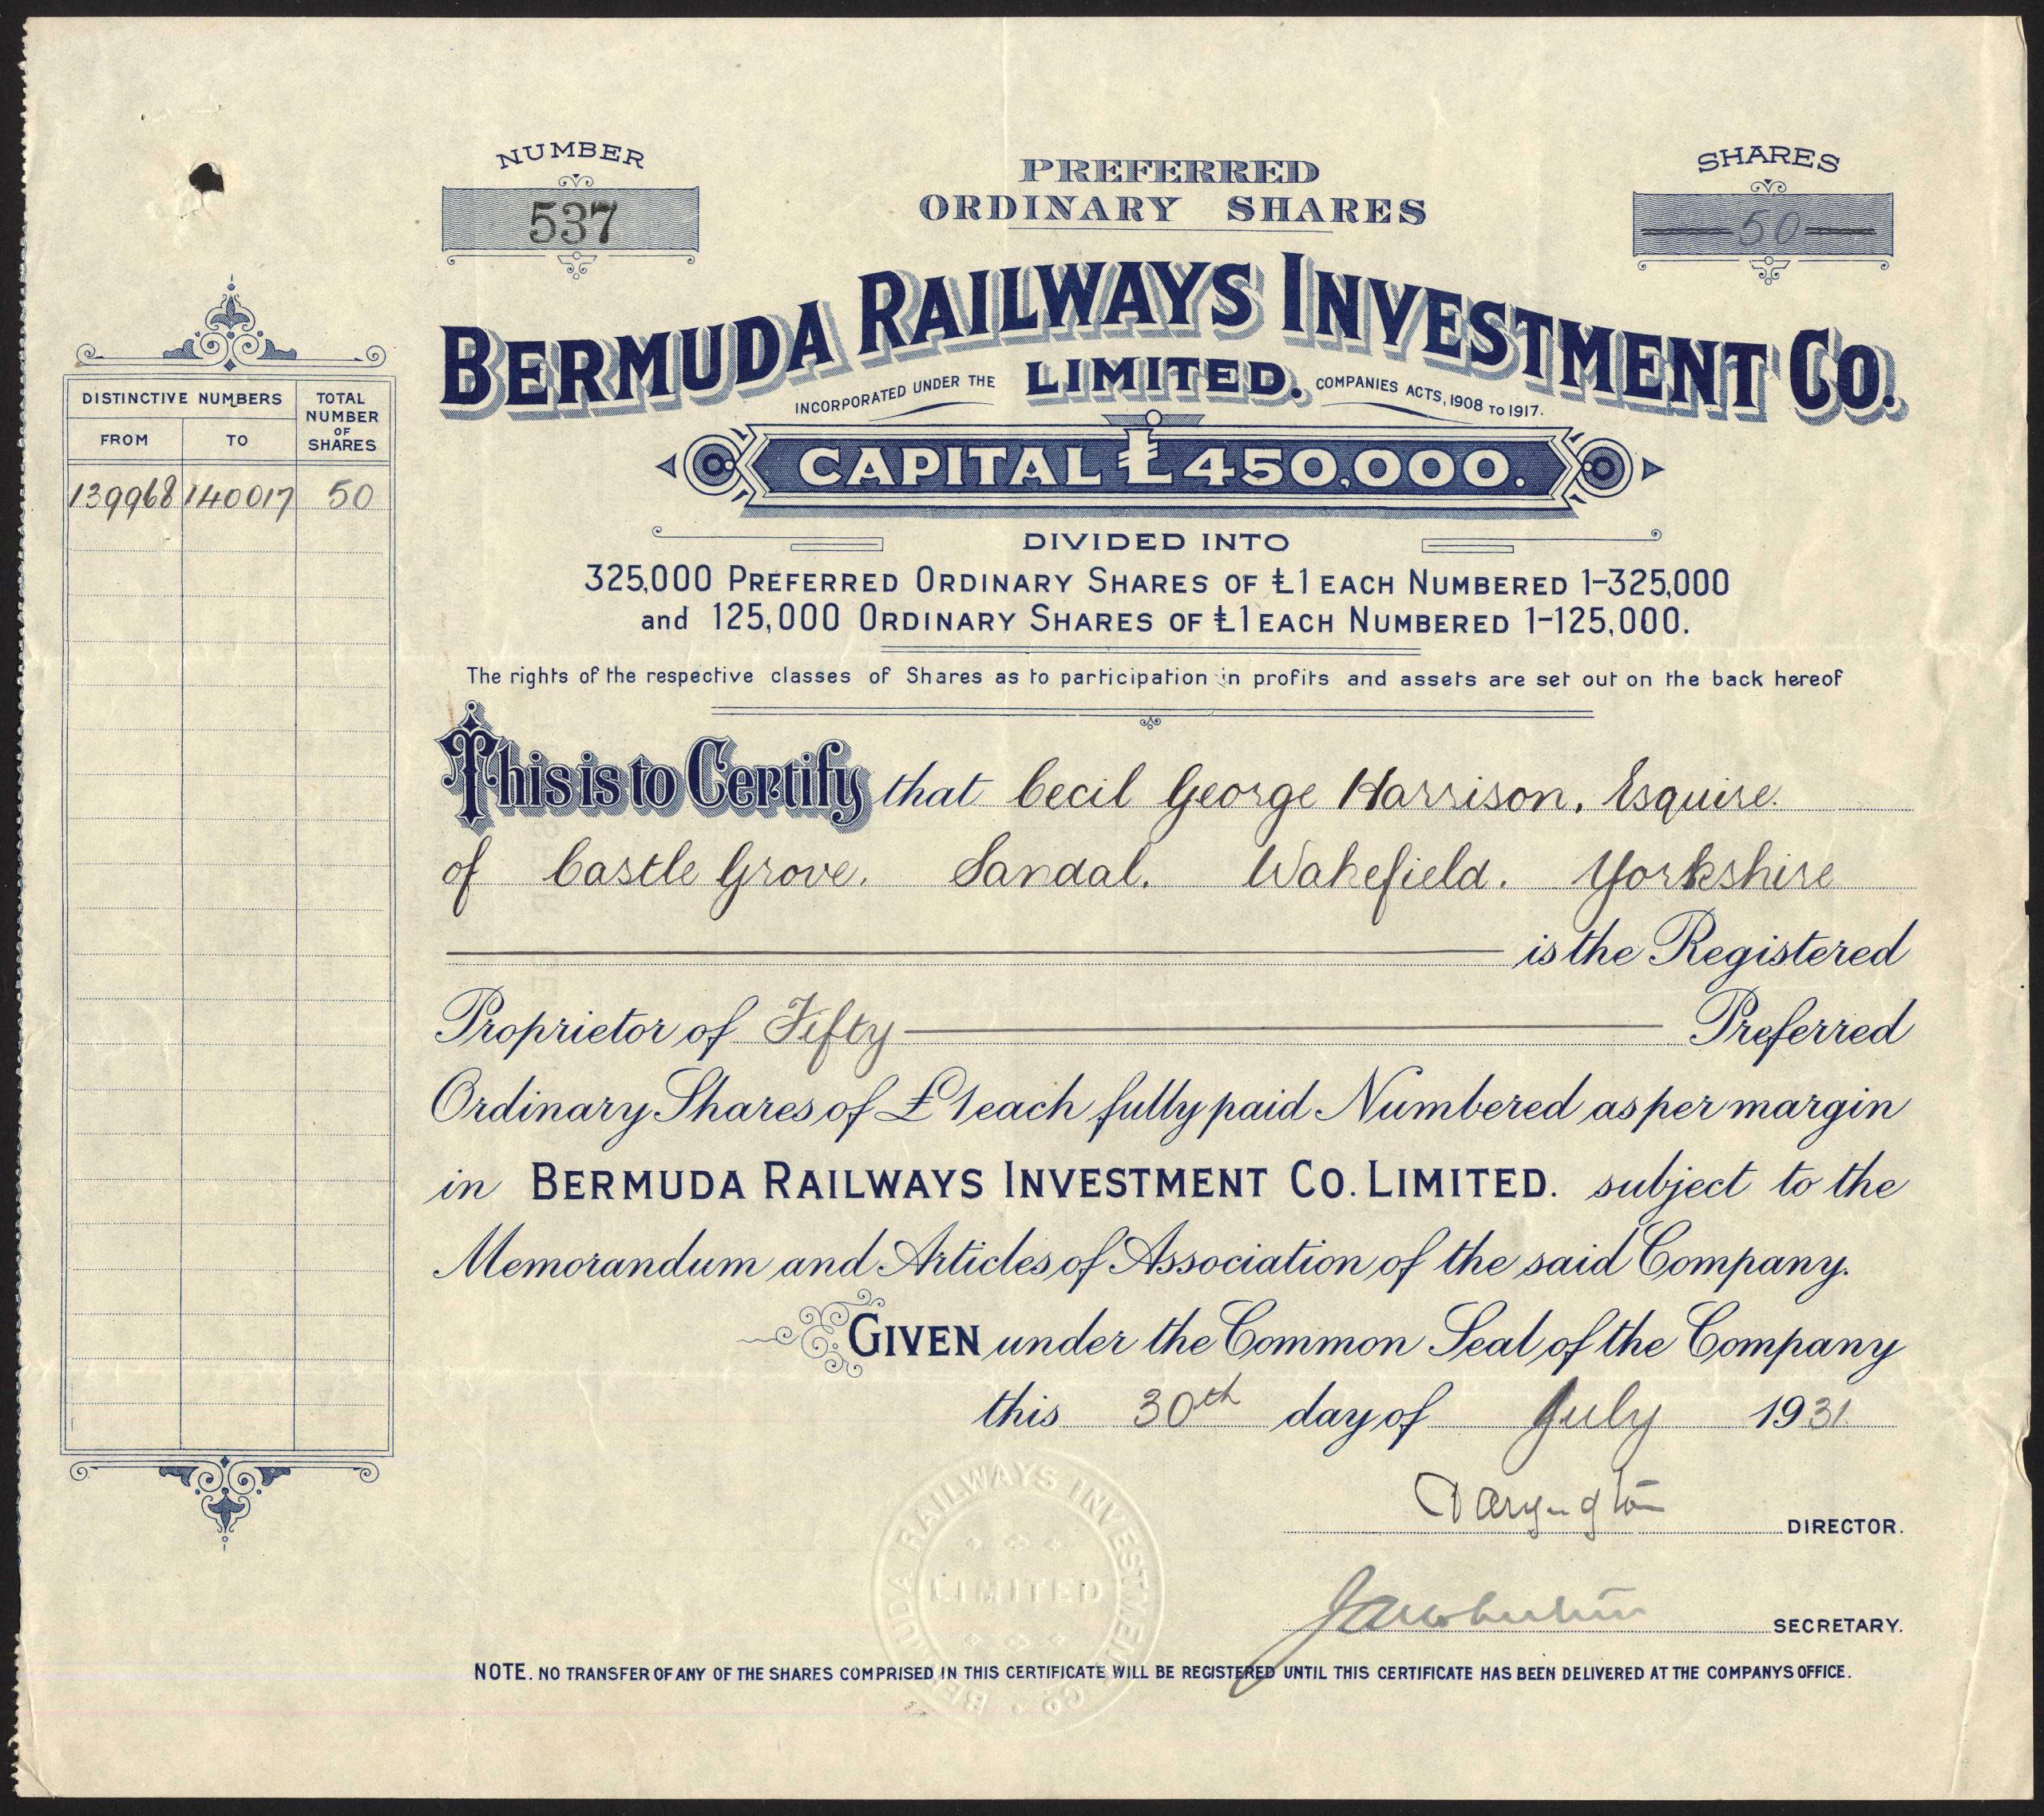 NUMBER
537
PREFERRED
ORDINARY SHARES
SHARES
50
BERMUDA RAILWAYS INVESTMENT CO.
LIMITED.
INCORPORATED UNDER THE COMPANIES ACTS, 1908 TO 1917.
CAPITAL £450,000.
DIVIDED INTO
325,000 PREFERRED ORDINARY SHARES OF £1 EACH NUMBERED 1-325,000
and 125,000 ORDINARY SHARES OF £1 EACH NUMBERED 1-125,000.
The rights of the respective classes of Shares as to participation in profits and assets are set out on the back hereof
DISTINCTIVE NUMBERS
TOTAL NUMBER OF SHARES
FROM TO
139968 140017 50
This is to Certify that Cecil George Harrison, Esquire.
of Castle Grove. Sandal. Wakefield. Yorkshire
is the Registered
Proprietor of Fifty Preferred
Ordinary Shares of £1 each fully paid Numbered as per margin
in BERMUDA RAILWAYS INVESTMENT CO. LIMITED. subject to the
Memorandum and Articles of Association of the said Company.
GIVEN under the Common Seal of the Company
this 30th day of July 1931
DIRECTOR.
SECRETARY.
BERMUDA RAILWAYS INVESTMENT CO
LIMITED
NOTE. NO TRANSFER OF ANY OF THE SHARES COMPRISED IN THIS CERTIFICATE WILL BE REGISTERED UNTIL THIS CERTIFICATE HAS BEEN DELIVERED AT THE COMPANYS OFFICE.